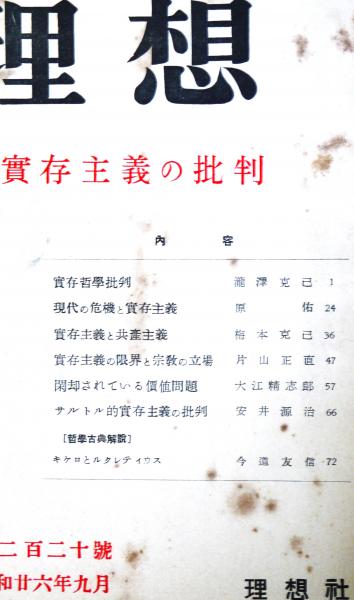 理想
實存主義の批判
內容
實存哲學批判 瀧澤克己 1
現代の危機と實存主義 原佑 24
實存主義と共產主義 梅本克己 36
實存主義の限界と宗敎の立場 片山正直 47
閑却されている價値問題 大江精志郞 57
サルトル的實存主義の批判 安井源治 66
〔哲學古典解說〕
キケロとルクレティウス 今道友信 72
二百二十號
和廿六年九月
理想社